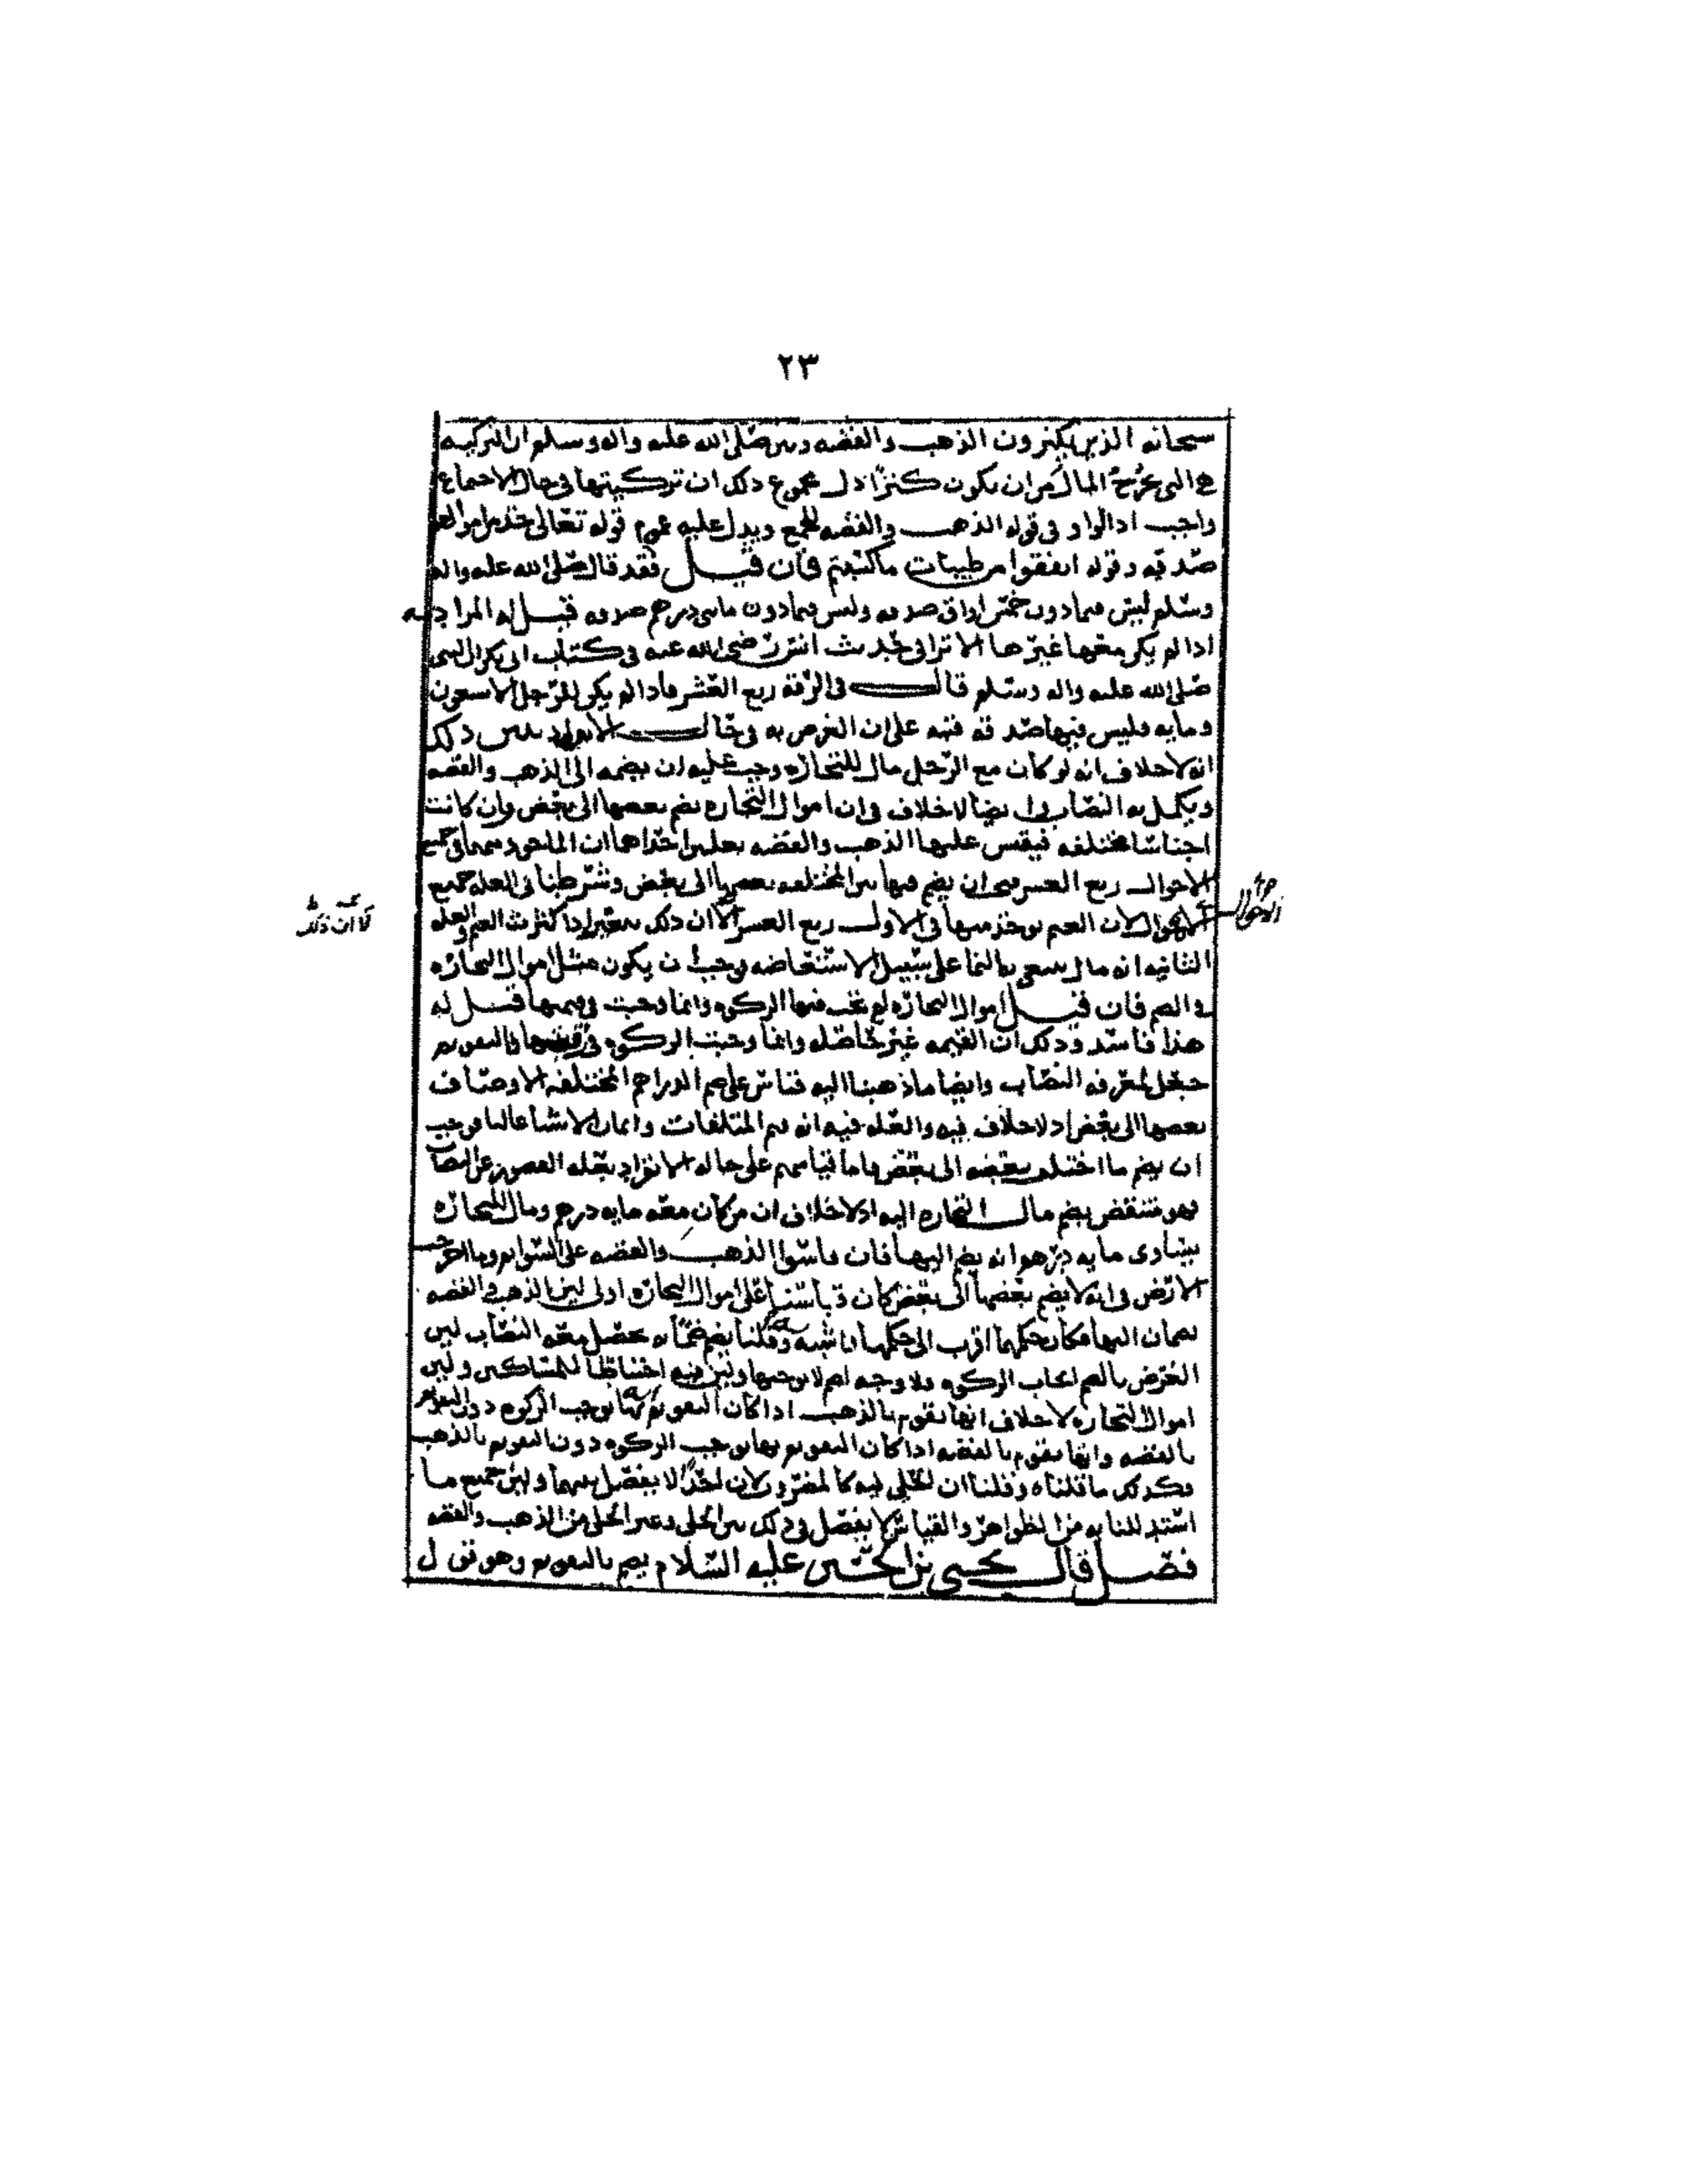 ٢٣
سبحانه الذين يكنزون الذهب والفضه وبين صلى الله عليه واله وسلم ان التزكيه
هي التي تخرج المال من ان يكون كنزا دل مجموع ذلك ان تزكيتها في حال الاجتماع
واجب اذ الواو في قوله الذهب والفضه للجمع ويدل عليه عموم قوله تعالى خذ من اموالهم
صدقه وقوله انفقوا من طيبات ما كسبتم فان قيل فقد قال صلى الله عليه واله
وسلم ليس فيما دون خمس اواق صدقه وليس فيما دون مايتي درهم صدقه قيل له المراد به
اذا لم يكن معها غيرها الا ترا في حديث انس رضي الله عنه في كتاب ابي بكر ان النبي
صلى الله عليه واله وسلم قال في الرقة ربع العشر فاذا لم يكن للرجل الا تسعون
ومايه فليس فيها صدقة فنبه على ان الغرض به في حال الانفراد يبين ذلك
انه لا خلاف انه لو كان مع الرجل مال للتجاره وجب عليه ان يضمه الى الذهب والفضه
ويكمل به النصاب وايضا لا خلاف في ان اموال التجاره يضم بعضها الى بعض وان كانت
اجناسا مختلفه فيقس عليها الذهب والفضه بعلتين احداهما ان الماخوذ منهما في جميع
الاحوال ربع العشر فيجب ان يضم فيها بين المختلفه بعضها الى بعض وشرطنا في العله جميع
الاحوال لان الغنم يوخذ منها في الاول ربع العشر الا ان ذلك يتغير اذا كثرت الغنم والعله
الاحوال
الا ان ذلك
الثانيه انه مال يبتغى به النما على سبيل الاستنفاضه فوجب ان يكون مثل اموال التجاره
في الضم فان قيل اموال التجاره لم تجب فيها الزكوه وانما وجبت في قيمتها قيل له
هذا فاسد وذلك ان القيمه غير حاصله وانما وجبت الزكوه في والتقويم
جعل لمعرفه النصاب وايضا ما ذهبنا اليه قياس على ضم الدراهم المختلفه الاوصاف
بعضها الى بعض اذ لا خلاف فيه والعله فيه انه قيم المتلفات واثمان الاشيا غالبا فوجب
ان يضم ما اختلف بعضه الى بعض فاما قياسهم على حاله الانفراد بعله القصور عن النصاب
فهو منتقض بضم مال التجاره اليه اذ لا خلاف في ان من كان معه مايه درهم ومال للتجاره
يساوى مايه درهم انه يضم اليها فان قاسوا الذهب والفضه على السوايم وما اخرجت
الارض في انه لا يضم بعضها الى بعض كان قياسنا على اموال التجاره اولى لان الذهب والفضه
يضمان اليها فكان حكمهما اقرب الى حكمها واشبه وقلنا يضم ضما به يحصل معه النصاب لان
الغرض بالضم ايجاب الزكوه ولا وجه لضم لا يوجبها ولان فيه احتياطا للمساكين ولان
اموال التجاره لا خلاف انها تقوم بالذهب اذا كان التقويم به يوجب الزكوه دون التقويم
بالفضه وانها تقوم بالفضه اذا كان التقويم بها يوجب الزكوه دون التقويم بالذهب
فكذلك ما قلناه وقلنا ان الحلي فيه كالمضروب لان احدا لا يفصل بينهما ولان جميع ما
استدللنا به من الظواهر والقياس لا يفصل في ذلك بين الحلي وغير الحلي من الذهب والفضه
فصل قال يحيى بن الحسين عليه السلام يضم بالتقويم وهو قول